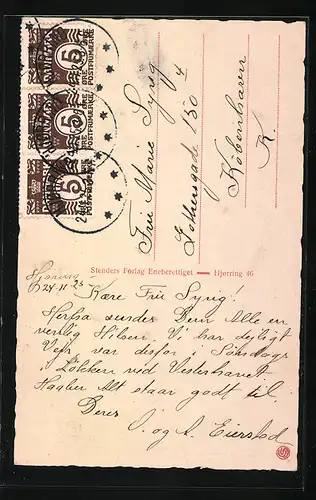 DANMARK 5 ØRE POSTFRIMÆRKE
DANMARK 5 ØRE POSTFRIMÆRKE
DANMARK 5 ØRE POSTFRIMÆRKE
Fru Marie Syrig
Gothersgade 150 4
København
K.
Stenders Forlag Eneberettiget — Hjørring 46
24-11 25
Kære Fru Syrig!
Herfra sendes Dem Alle en
venlig Hilsen. Vi har dejligt
Vejr var disfor i Søndags
i Løkken ved Vesterhavet
Haaber Alt staar godt til.
Deres
J. og A. Eierstad